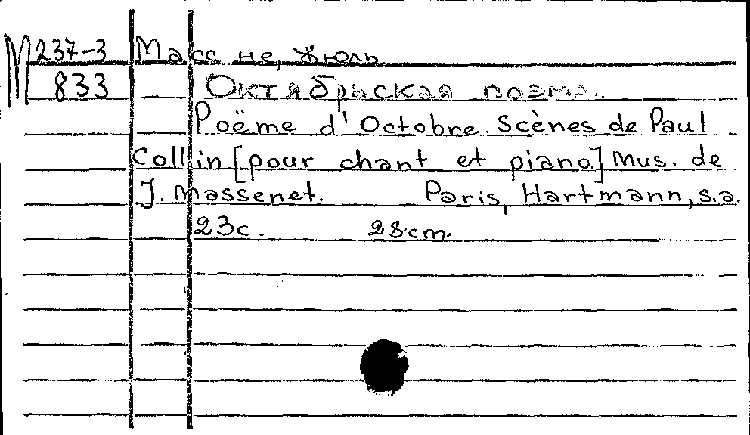 М 237-3 Масс не, Жюль
833 Октябрьская поэма.
Poëme d'Octobre. Scènes de Paul
Collin [pour chant et piano] Mus. de
J. Massenet. Paris, Hartmann, s.a.
23c. 28cm.